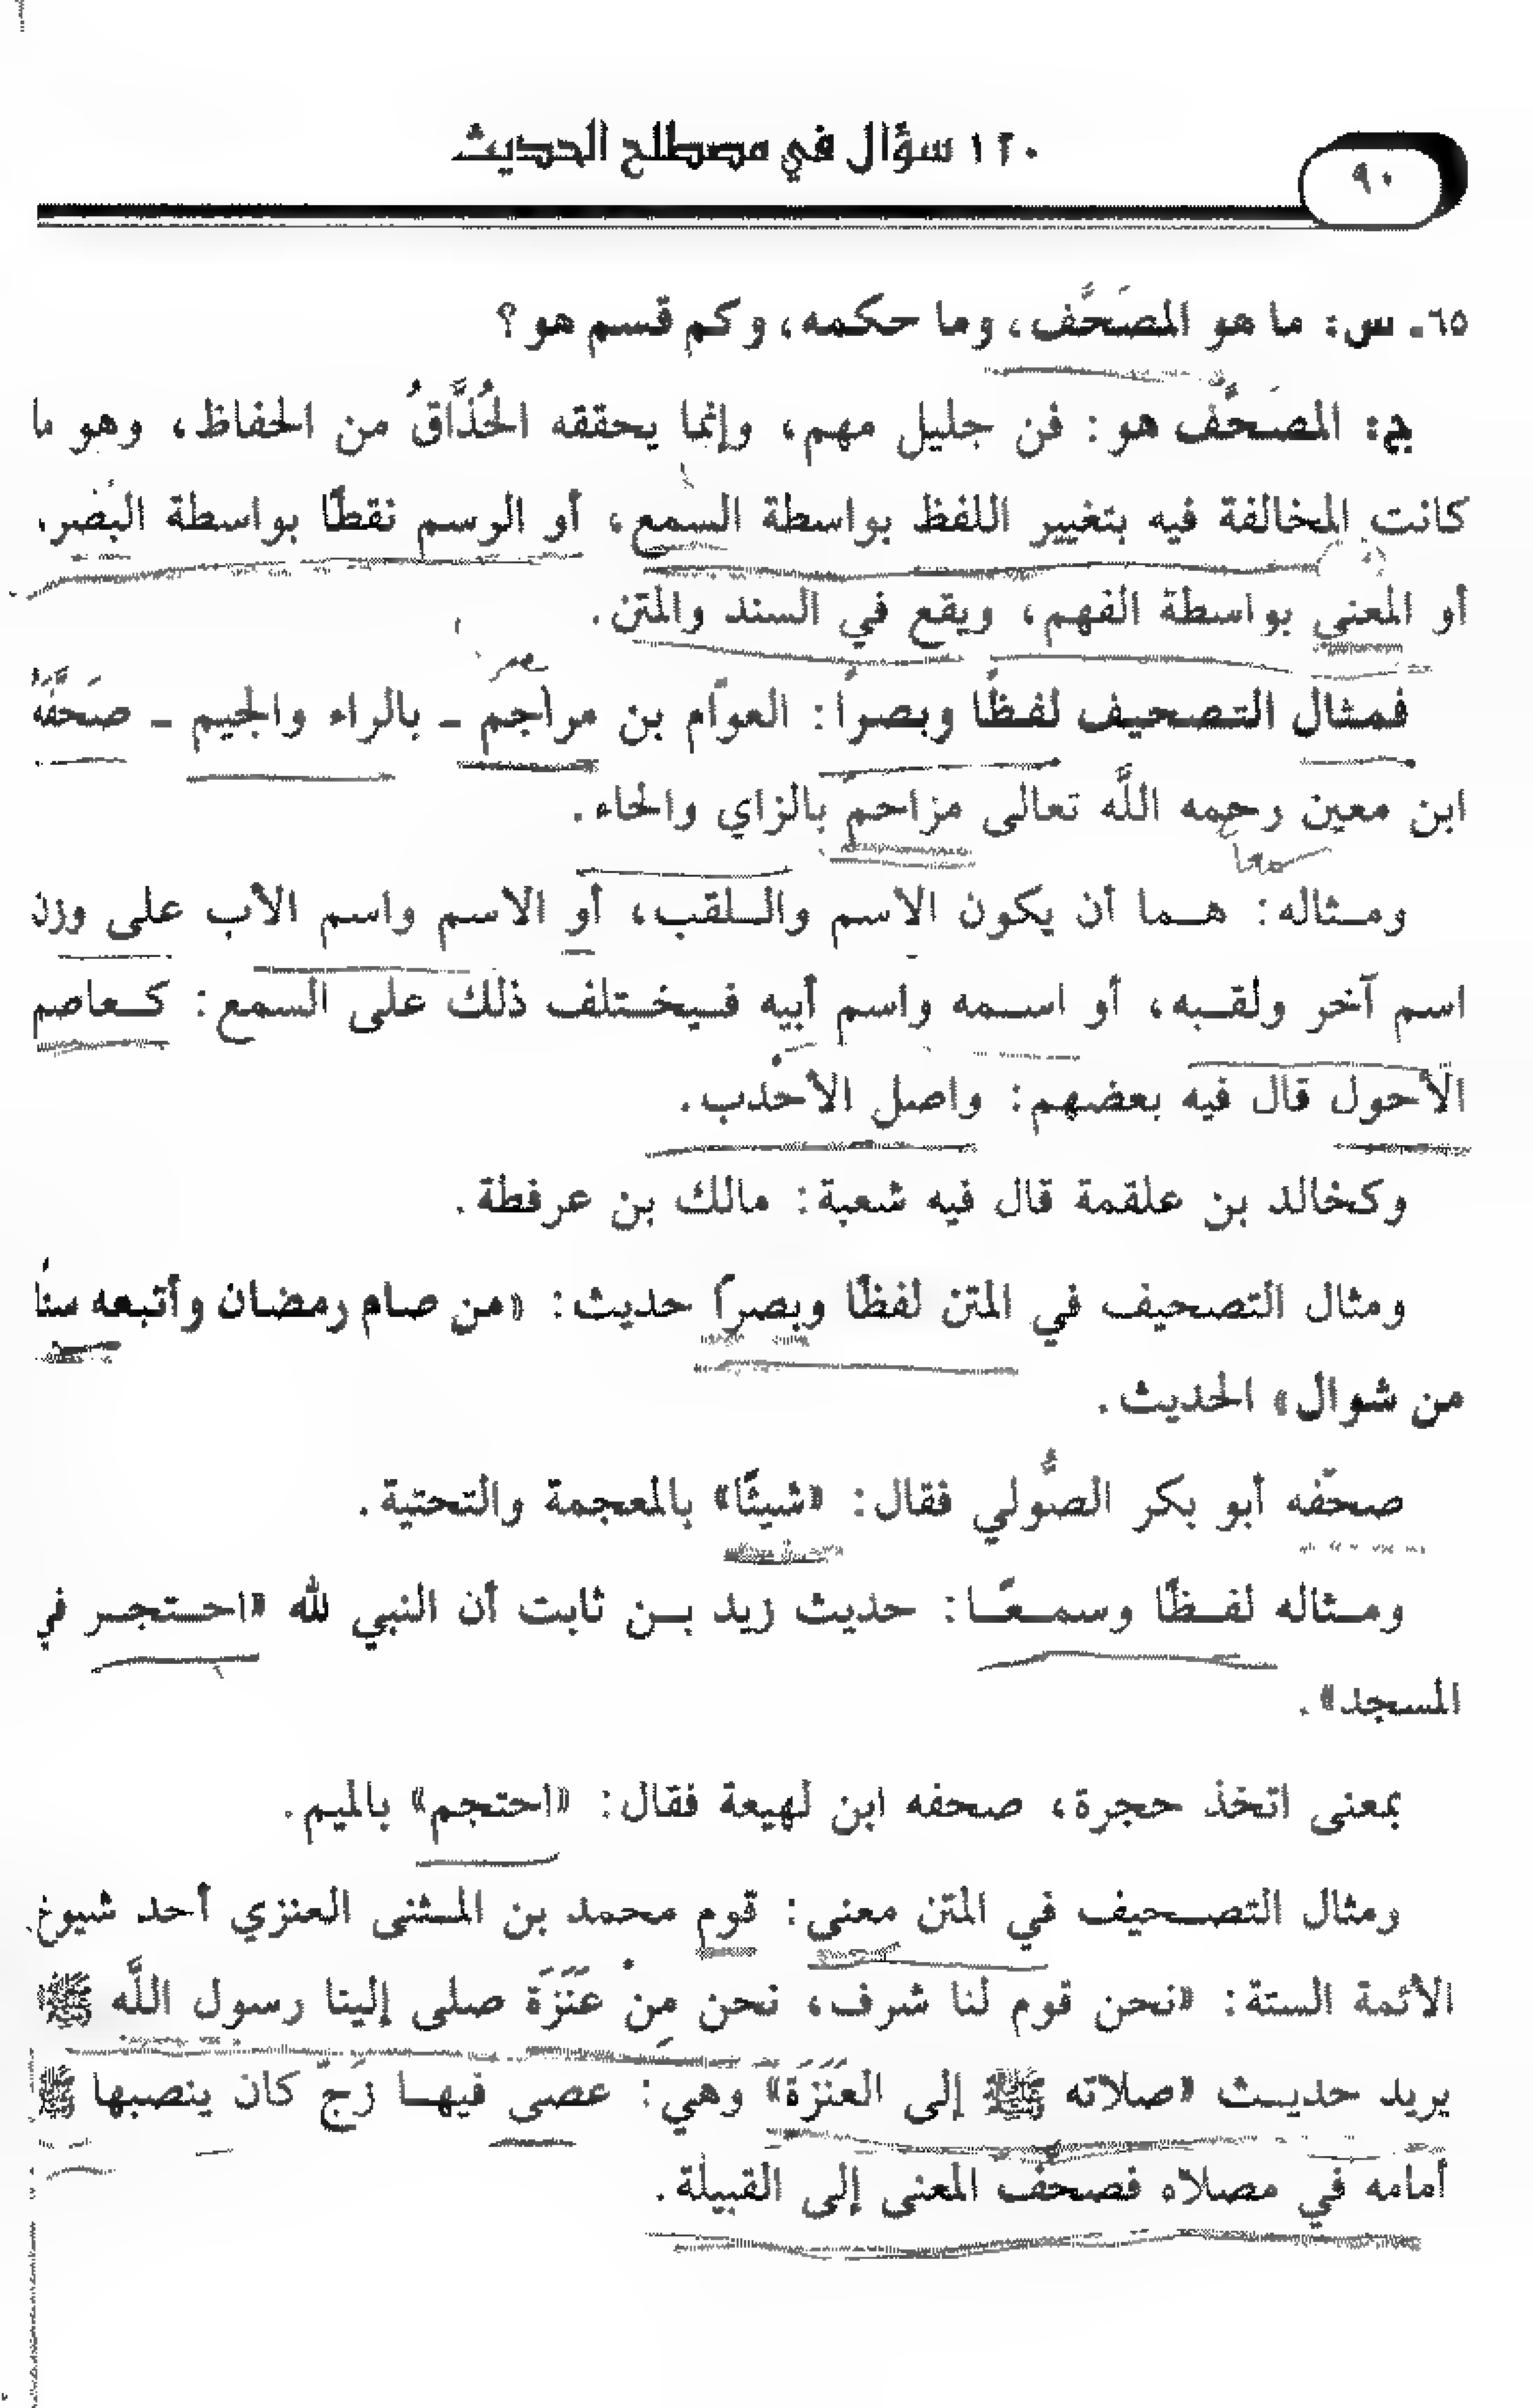 ١٢٠ سؤال في مصطلح الحديث
٩٠
٦٥ـ س: ما هو المصَحَّف، وما حكمه، وكم قسم هو؟
ج: المصَحَّف هو: فن جليل مهم، وإنما يحققه الحُذَّاقُ من الحفاظ، وهو ما
كانت المخالفة فيه بتغيير اللفظ بواسطة السمع، أو الرسم نقطًا بواسطة البصر.
أو المعنى بواسطة الفهم، ويقع في السند والمتن.
فمثال التصحيف لفظًا وبصرًا: العوّام بن مراجم ـ بالراء والجيم ـ صَحَّفَهُ
ابن معين رحمه اللَّه تعالى مزاحم بالزاي والحاء.
ومثاله: هما أن يكون الاسم واللقب، أو الاسم واسم الأب على وزن
اسم آخر ولقبه، أو اسمه واسم أبيه فيختلف ذلك على السمع: كعاصم
الأحول قال فيه بعضهم: واصل الأحدب.
وكخالد بن علقمة قال فيه شعبة: مالك بن عرفطة.
ومثال التصحيف في المتن لفظًا وبصرًا حديث: «من صام رمضان وأتبعه ستًا
من شوال» الحديث.
صحّفه أبو بكر الصُّولي فقال: «شيئًا» بالمعجمة والتحتية.
ومثاله لفظًا وسمعًا: حديث زيد بن ثابت أن النبي لله «احتجر في
المسجد».
بمعنى اتخذ حجرة، صحفه ابن لهيعة فقال: «احتجم» بالميم.
ومثال التصحيف في المتن معنى: قوم محمد بن المثنى العنزي أحد شيوخ
الأئمة الستة: «نحن قوم لنا شرف، نحن مِنْ عَنَزَة صلى إلينا رسول اللَّه ﷺ
يريد حديث «صلاته ﷺ إلى العَنَزَة» وهي: عصى فيها زَجّ كان ينصبها ﷺ
أمامه في مصلاه فصحف المعنى إلى القبيلة.